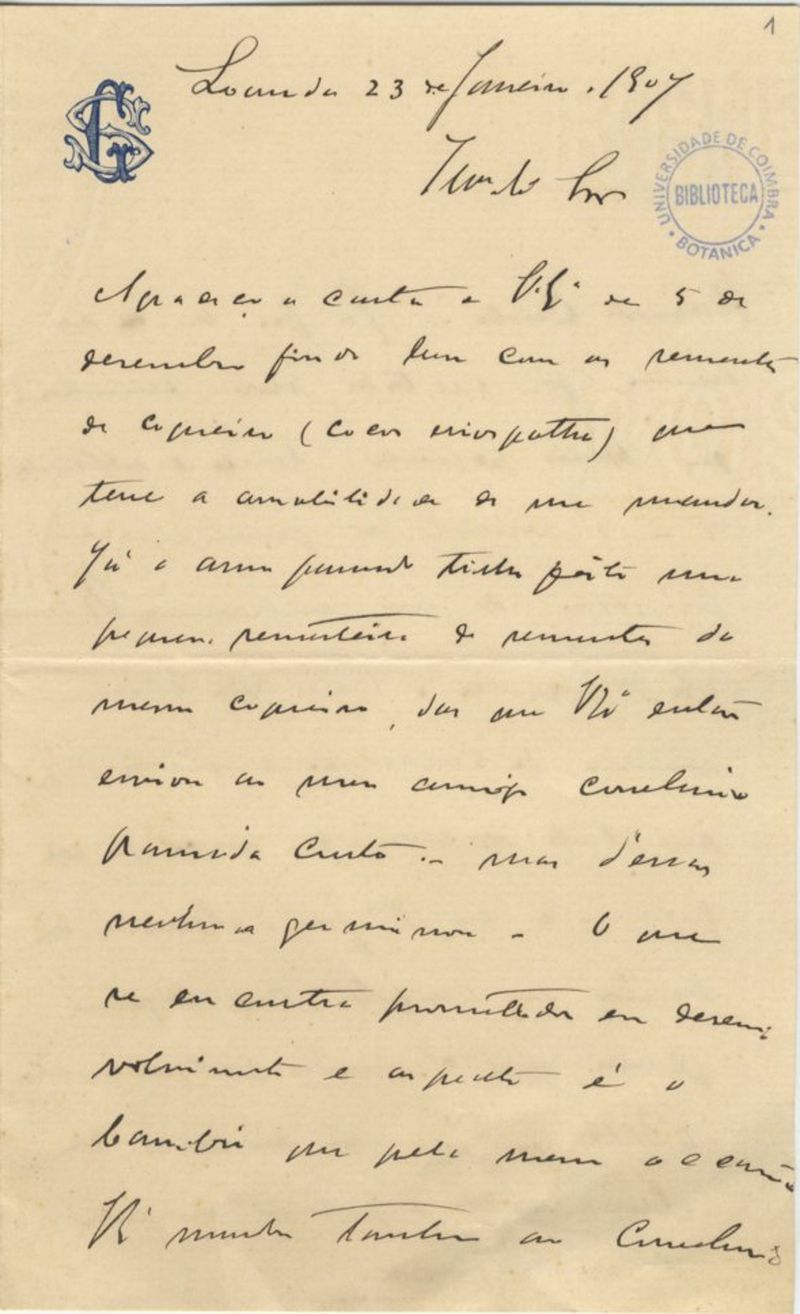 1
Loanda 23 de Janeiro. 1907
UNIVERSIDADE DE COIMBRA
BIBLIOTECA
BOTANICA
Snr
Agradeço a carta de V. Exª de 5 de
dezembro findo bem com as sementes
de coqueiro (cocos eriospatha) que
teve a amabilidade de me mandar.
Já o anno passado tinha feito uma
pequena sementeira de sementes do
mesmo coqueiro, das que V. Exª então
enviou ao meu amigo conselheiro
Ramada Curto. - mas d'essas
nenhuma germinou - O que
se encontra promettedor em desen-
volvimento e aspecto é o
bambú que pela mesma occasião
V. Exª mandou tambem ao Conselheiro